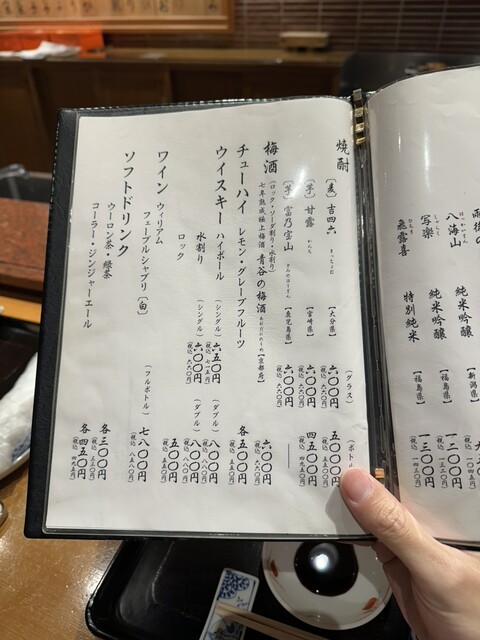 八海山
はっかいさん
純米吟醸
【新潟県】
写楽
しゃらく
純米吟醸
【福島県】
一二〇〇円
（税込 一三二〇円）
飛露喜
ひろき
特別純米
【福島県】
一三〇〇円
（税込 一四三〇円）
焼酎
（グラス）
〔麦〕 吉四六
きっちょむ
【大分県】
六〇〇円
（税込 六六〇円）
〔芋〕 甘露
かんろ
【宮崎県】
六〇〇円
（税込 六六〇円）
四五〇〇円
（税込 四九五〇円）
〔芋〕 富乃宝山
とみのほうざん
【鹿児島県】
六〇〇円
（税込 六六〇円）
梅酒
（ロック・ソーダ割り・水割り）
七年熟成極上梅酒 青谷の梅酒
【京都府】
六〇〇円
（税込 六六〇円）
チューハイ
レモン・グレープフルーツ
各五〇〇円
（税込 五五〇円）
ウイスキー
ハイボール
（シングル）
六五〇円
（税込 七一五円）
（ダブル）
八〇〇円
（税込 八八〇円）
水割り
（シングル）
六〇〇円
（税込 六六〇円）
（ダブル）
八〇〇円
（税込 八八〇円）
ロック
五〇〇円
ワイン
ウィリアム
フェーブル シャブリ 〔白〕
（フルボトル）
七八〇〇円
（税込 八五八〇円）
ソフトドリンク
ウーロン茶・緑茶
各三〇〇円
（税込 三三〇円）
コーラー・ジンジャーエール
各四五〇円
（税込 四九五円）